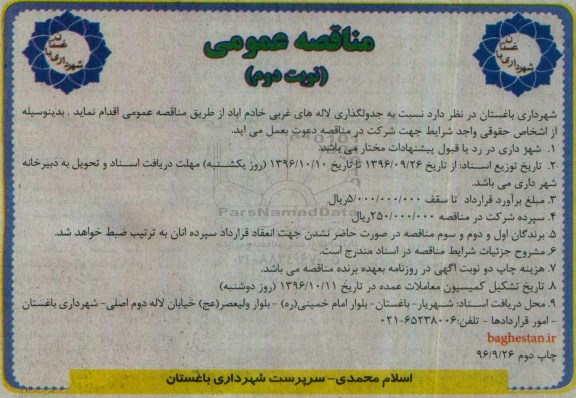 مناقصه عمومی
(نوبت دوم)
شهرداری باغستان
شهرداری باغستان
شهرداری باغستان در نظر دارد نسبت به جدولگذاری لاله های غربی خادم اباد از طریق مناقصه عمومی اقدام نماید . بدینوسیله
از اشخاص حقوقی واجد شرایط جهت شرکت در مناقصه دعوت بعمل می اید.
۱. شهر داری در رد یا قبول پیشنهادات مختار می باشد.
۲. تاریخ توزیع اسناد: از تاریخ ۱۳۹۶/۰۹/۲۶ تا تاریخ ۱۳۹۶/۱۰/۱۰ (روز یکشنبه) مهلت دریافت اسناد و تحویل به دبیرخانه
شهر داری می باشد.
۳. مبلغ برآورد قرارداد تا سقف ۵/۰۰۰/۰۰۰/۰۰۰ریال
۴. سپرده شرکت در مناقصه ۲۵۰/۰۰۰/۰۰۰ریال
۵. برندگان اول و دوم و سوم مناقصه در صورت حاضر نشدن جهت انعقاد قرارداد سپرده انان به ترتیب ضبط خواهد شد.
۶. مشروح جزئیات شرایط مناقصه در اسناد مندرج است.
۷. هزینه چاپ دو نوبت اگهی در روزنامه بعهده برنده مناقصه می باشد.
۸. تاریخ تشکیل کمیسیون معاملات عمده در تاریخ ۱۳۹۶/۱۰/۱۱ (روز دوشنبه)
۹. محل دریافت اسناد: شهریار- باغستان- بلوار امام خمینی(ره) - بلوار ولیعصر(عج) خیابان لاله دوم اصلی- شهرداری باغستان
- امور قراردادها - تلفن:۶۵۲۳۸۰۰۶-۰۲۱
baghestan.ir
چاپ دوم ۹۶/۹/۲۶
اسلام محمدی- سرپرست شهرداری باغستان
ParsNamadData